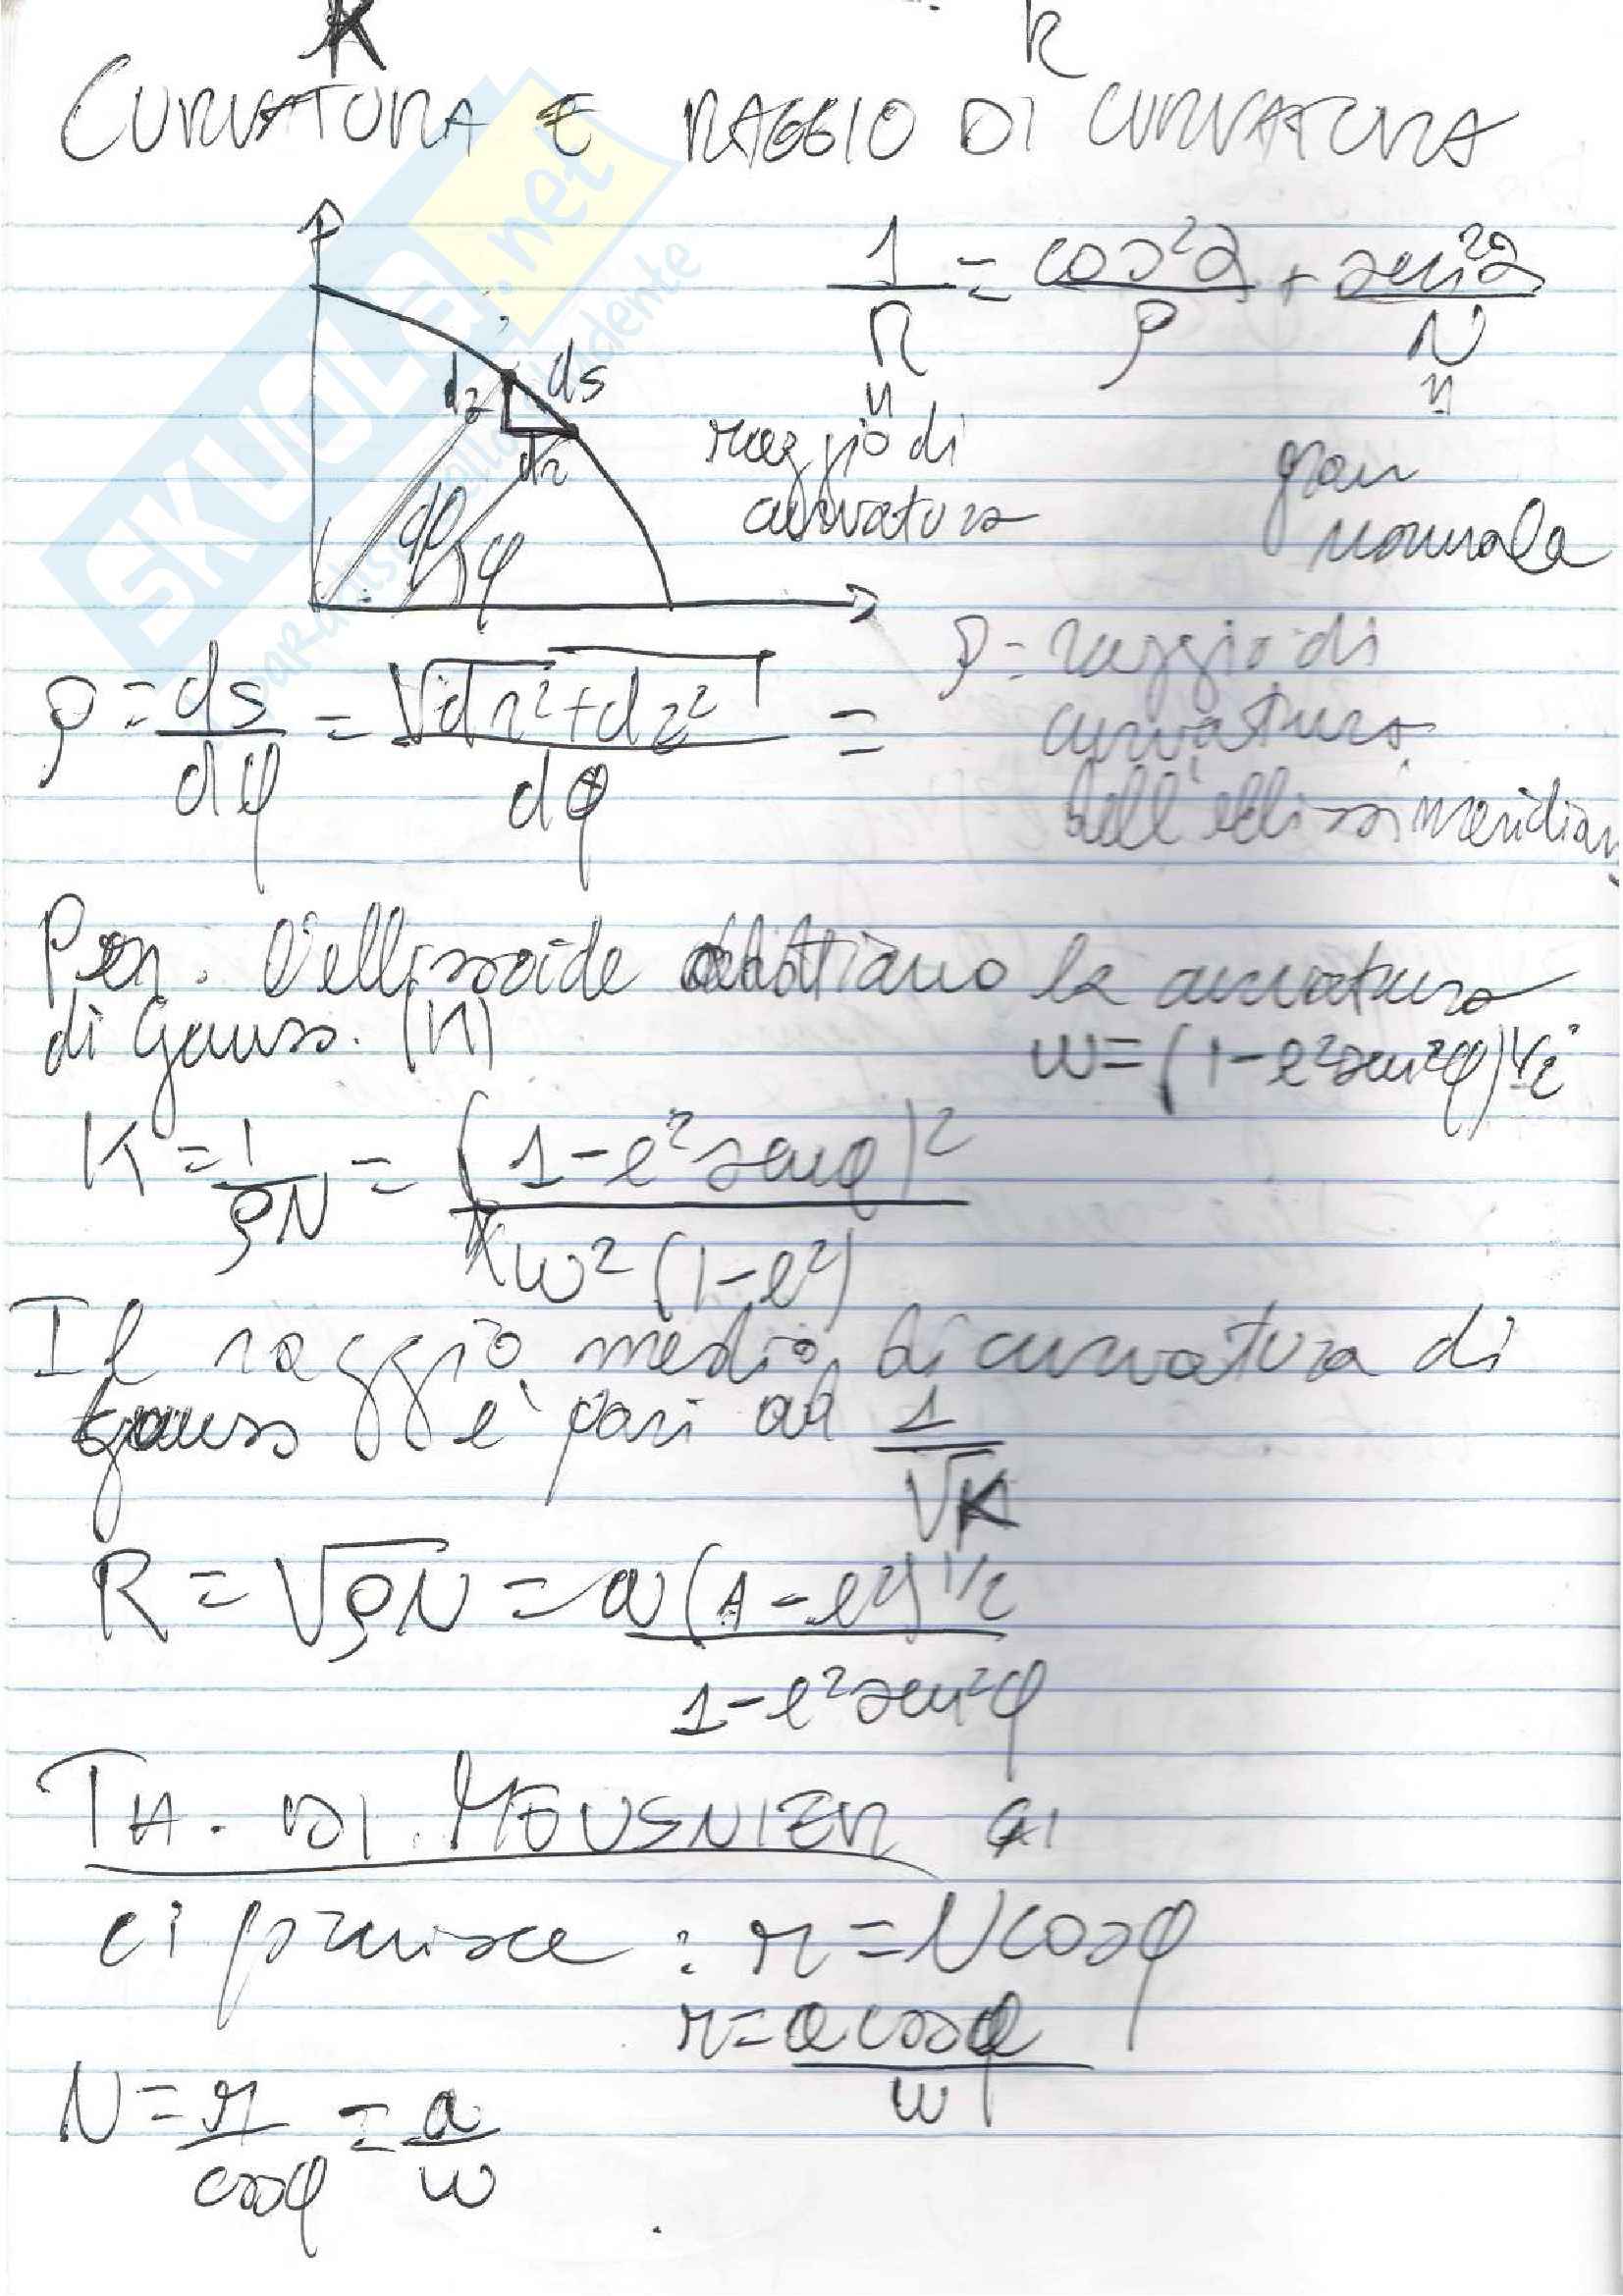 K
R
CURVATURA E RAGGIO DI CURVATURA
1/R = cos²α/ρ + sen²α/N
raggio di
curvatura
gran
normale
dz ds
dr
dφ φ
ρ = ds/dφ = √(dr²+dz²)/dφ =
ρ = raggio di
curvatura
dell'ellissi meridian
Per. l'ellissoide abbiamo la curvatura
di Gauss. (K)
w = (1-e²sen²φ)^1/2
K = 1/ρN = (1-e²senφ)²/w²(1-e²)
Il raggio medio di curvatura di
Gauss è pari ad 1/√K
R = √ρN = a(1-e²)^1/2/1-e²sen²φ
TH. DI MEUSNIER
ci fornisce : r = N cosφ
r = a cosφ/w
N = r/cosφ = a/w
SKUOLA.net